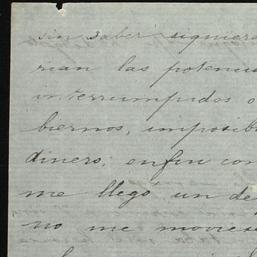 sin saber siquiera
rian las potenci
interrumpidos o
biernos, imposib
dinero; enfin con
me llegó un de
no me moviese